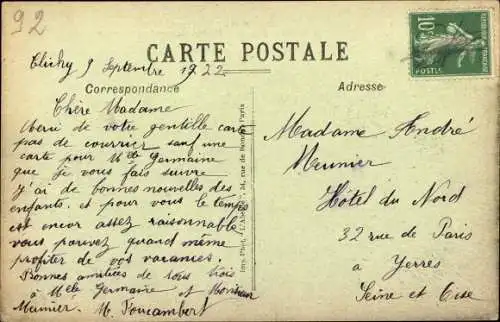 92
10c
POSTES
Clichy 9 Septembre 1922
CARTE POSTALE
Correspondance
Adresse
Chère Madame
Merci de votre gentille carte
pas de courrier sauf une
carte pour Melle Germaine
que je vous fais suivre
J'ai de bonnes nouvelles des
enfants. et pour vous le temps
est encor assez raisonnable
vous pouvez quand même
profiter de vos vacances.
Bonnes amitiées de tous trois
à Melle Germaine et Monsieur
Meunier. M. Foucambert
Madame André
Meunier
Hôtel du Nord
32 rue de Paris
à Yerres
Seine et Oise